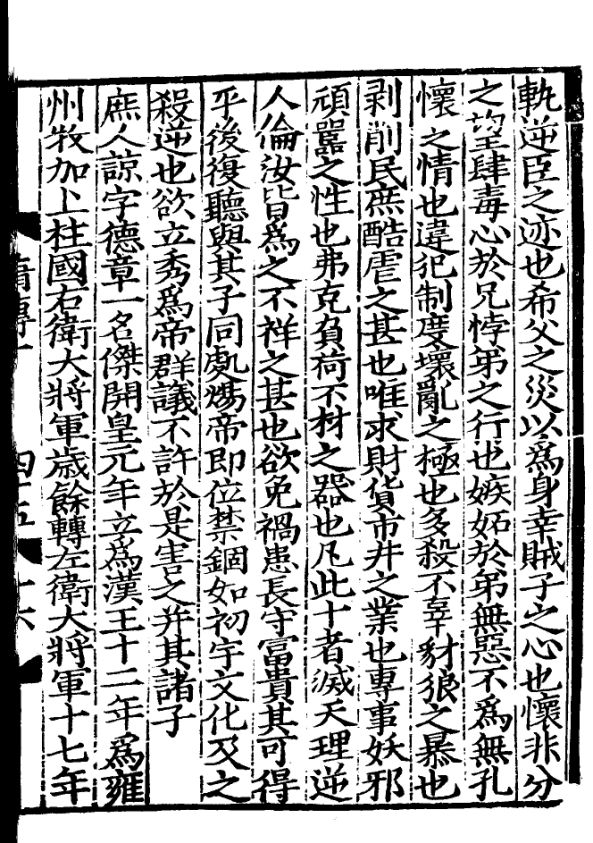 軌逆臣之迹也希父之災以爲身幸賊子之心也懷非分
之望肆毒心於兄悖弟之行也嫉妬於弟無惡不爲無孔
懷之情也違犯制度壞亂之極也多殺不辜豺狼之暴也
剥削民庶酷虐之甚也唯求財貨市井之業也專事妖邪
頑嚚之性也弗克負荷不材之器也凡此十者滅天理逆
人倫汝皆爲之不祥之甚也欲免禍患長守富貴其可得
乎後復聽與其子同處煬帝即位禁錮如初宇文化及之
殺逆也欲立秀爲帝群議不許於是害之并其諸子
庶人諒字德章一名傑開皇元年立爲漢王十二年爲雍
州牧加上柱國右衛大將軍歲餘轉左衛大將軍十七年